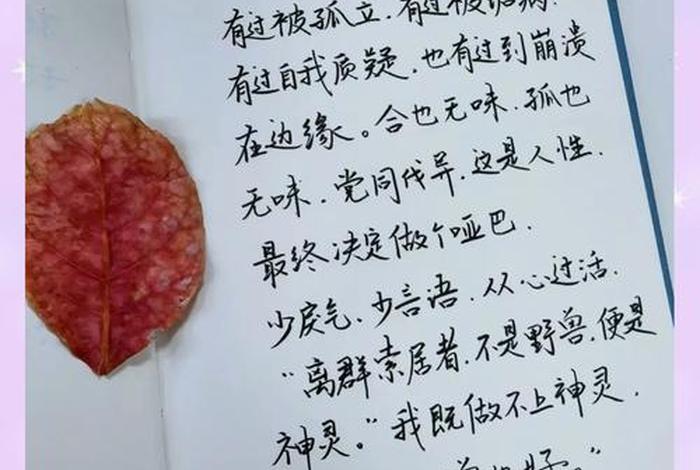 有过被孤立、有过被诟病、
有过自我质疑、也有过到崩溃
在边缘。合也无味、孤也
无味、党同伐异、这是人性、
最终决定做个哑巴、
少戾气、少言语、从心过活、
“离群索居者、不是野兽、便是
神灵。”我既做不上神灵、